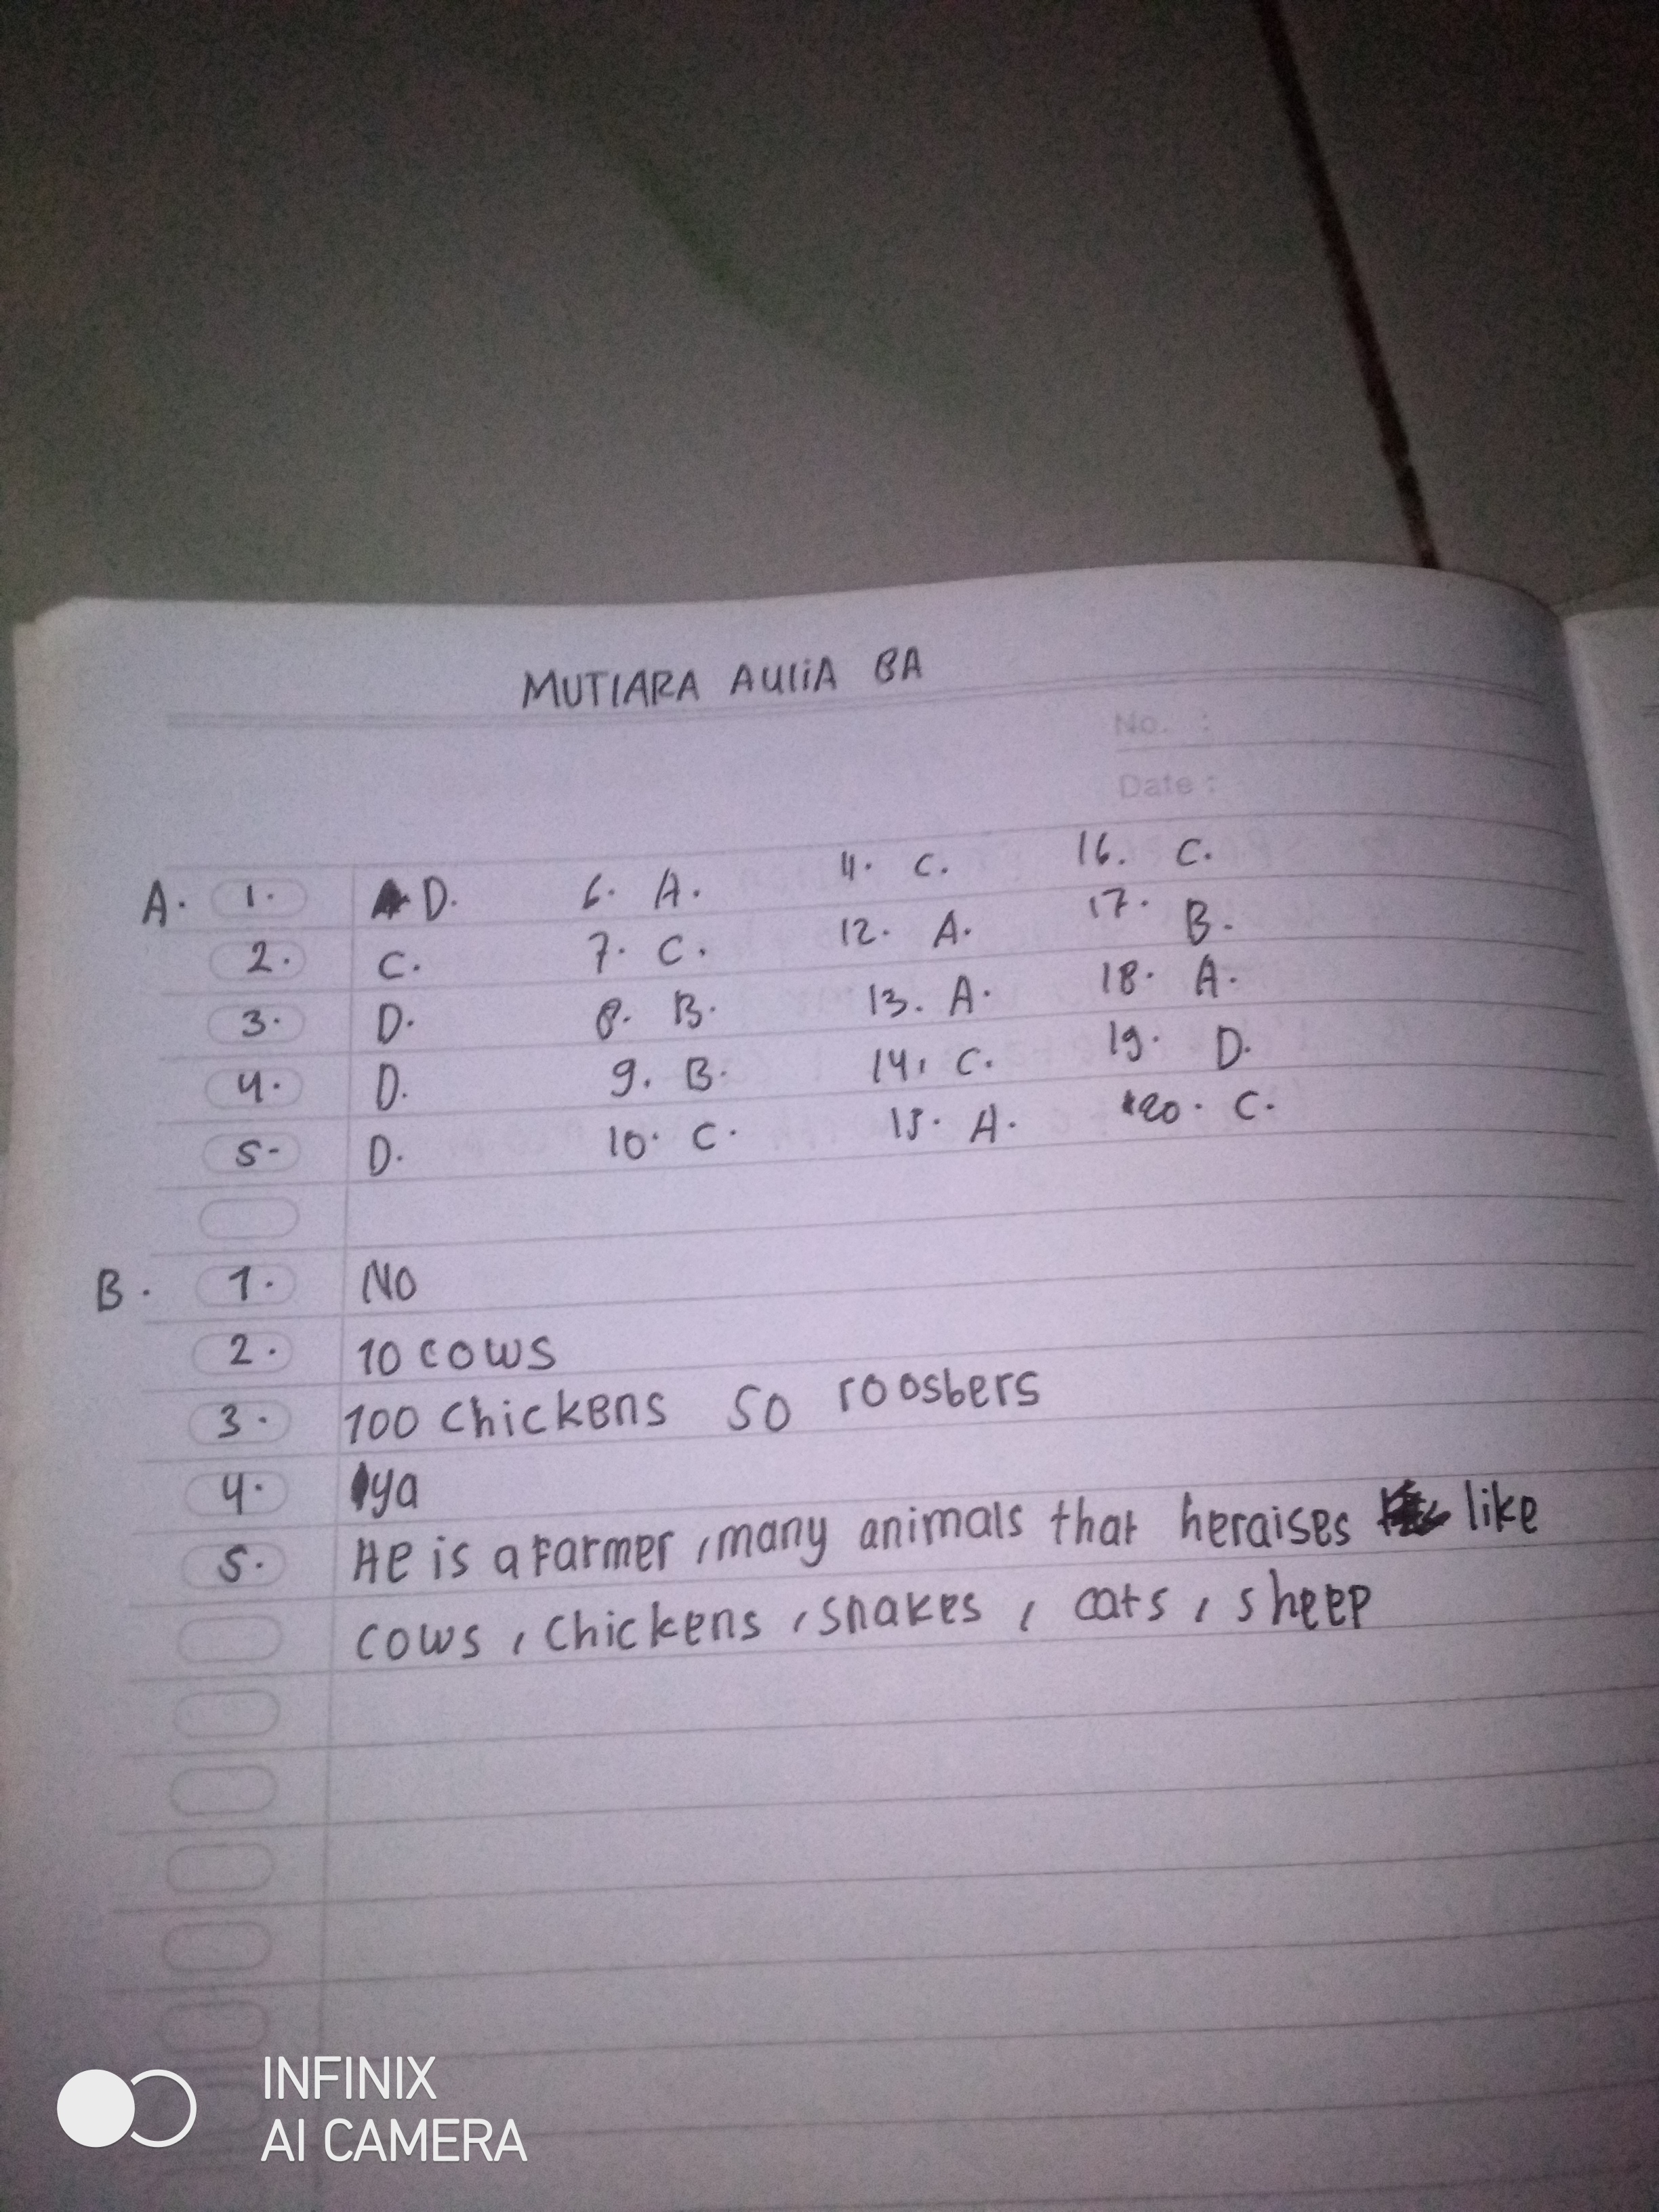 MUTIARA AULIA BA
No. :
Date :
A. 1. D. 6. A. 11. C. 16. C.
2. C. 7. C. 12. A. 17. B.
3. D. 8. B. 13. A. 18. A.
4. D. 9. B. 14. C. 19. D.
5. D. 10. C. 15. A. 20. C.
B. 1. NO
2. 10 cows
3. 100 Chickens 50 roosters
4. ya
5. He is a Farmer, many animals that heraises like
cows, Chickens, snakes, cats, sheep
INFINIX
AI CAMERA